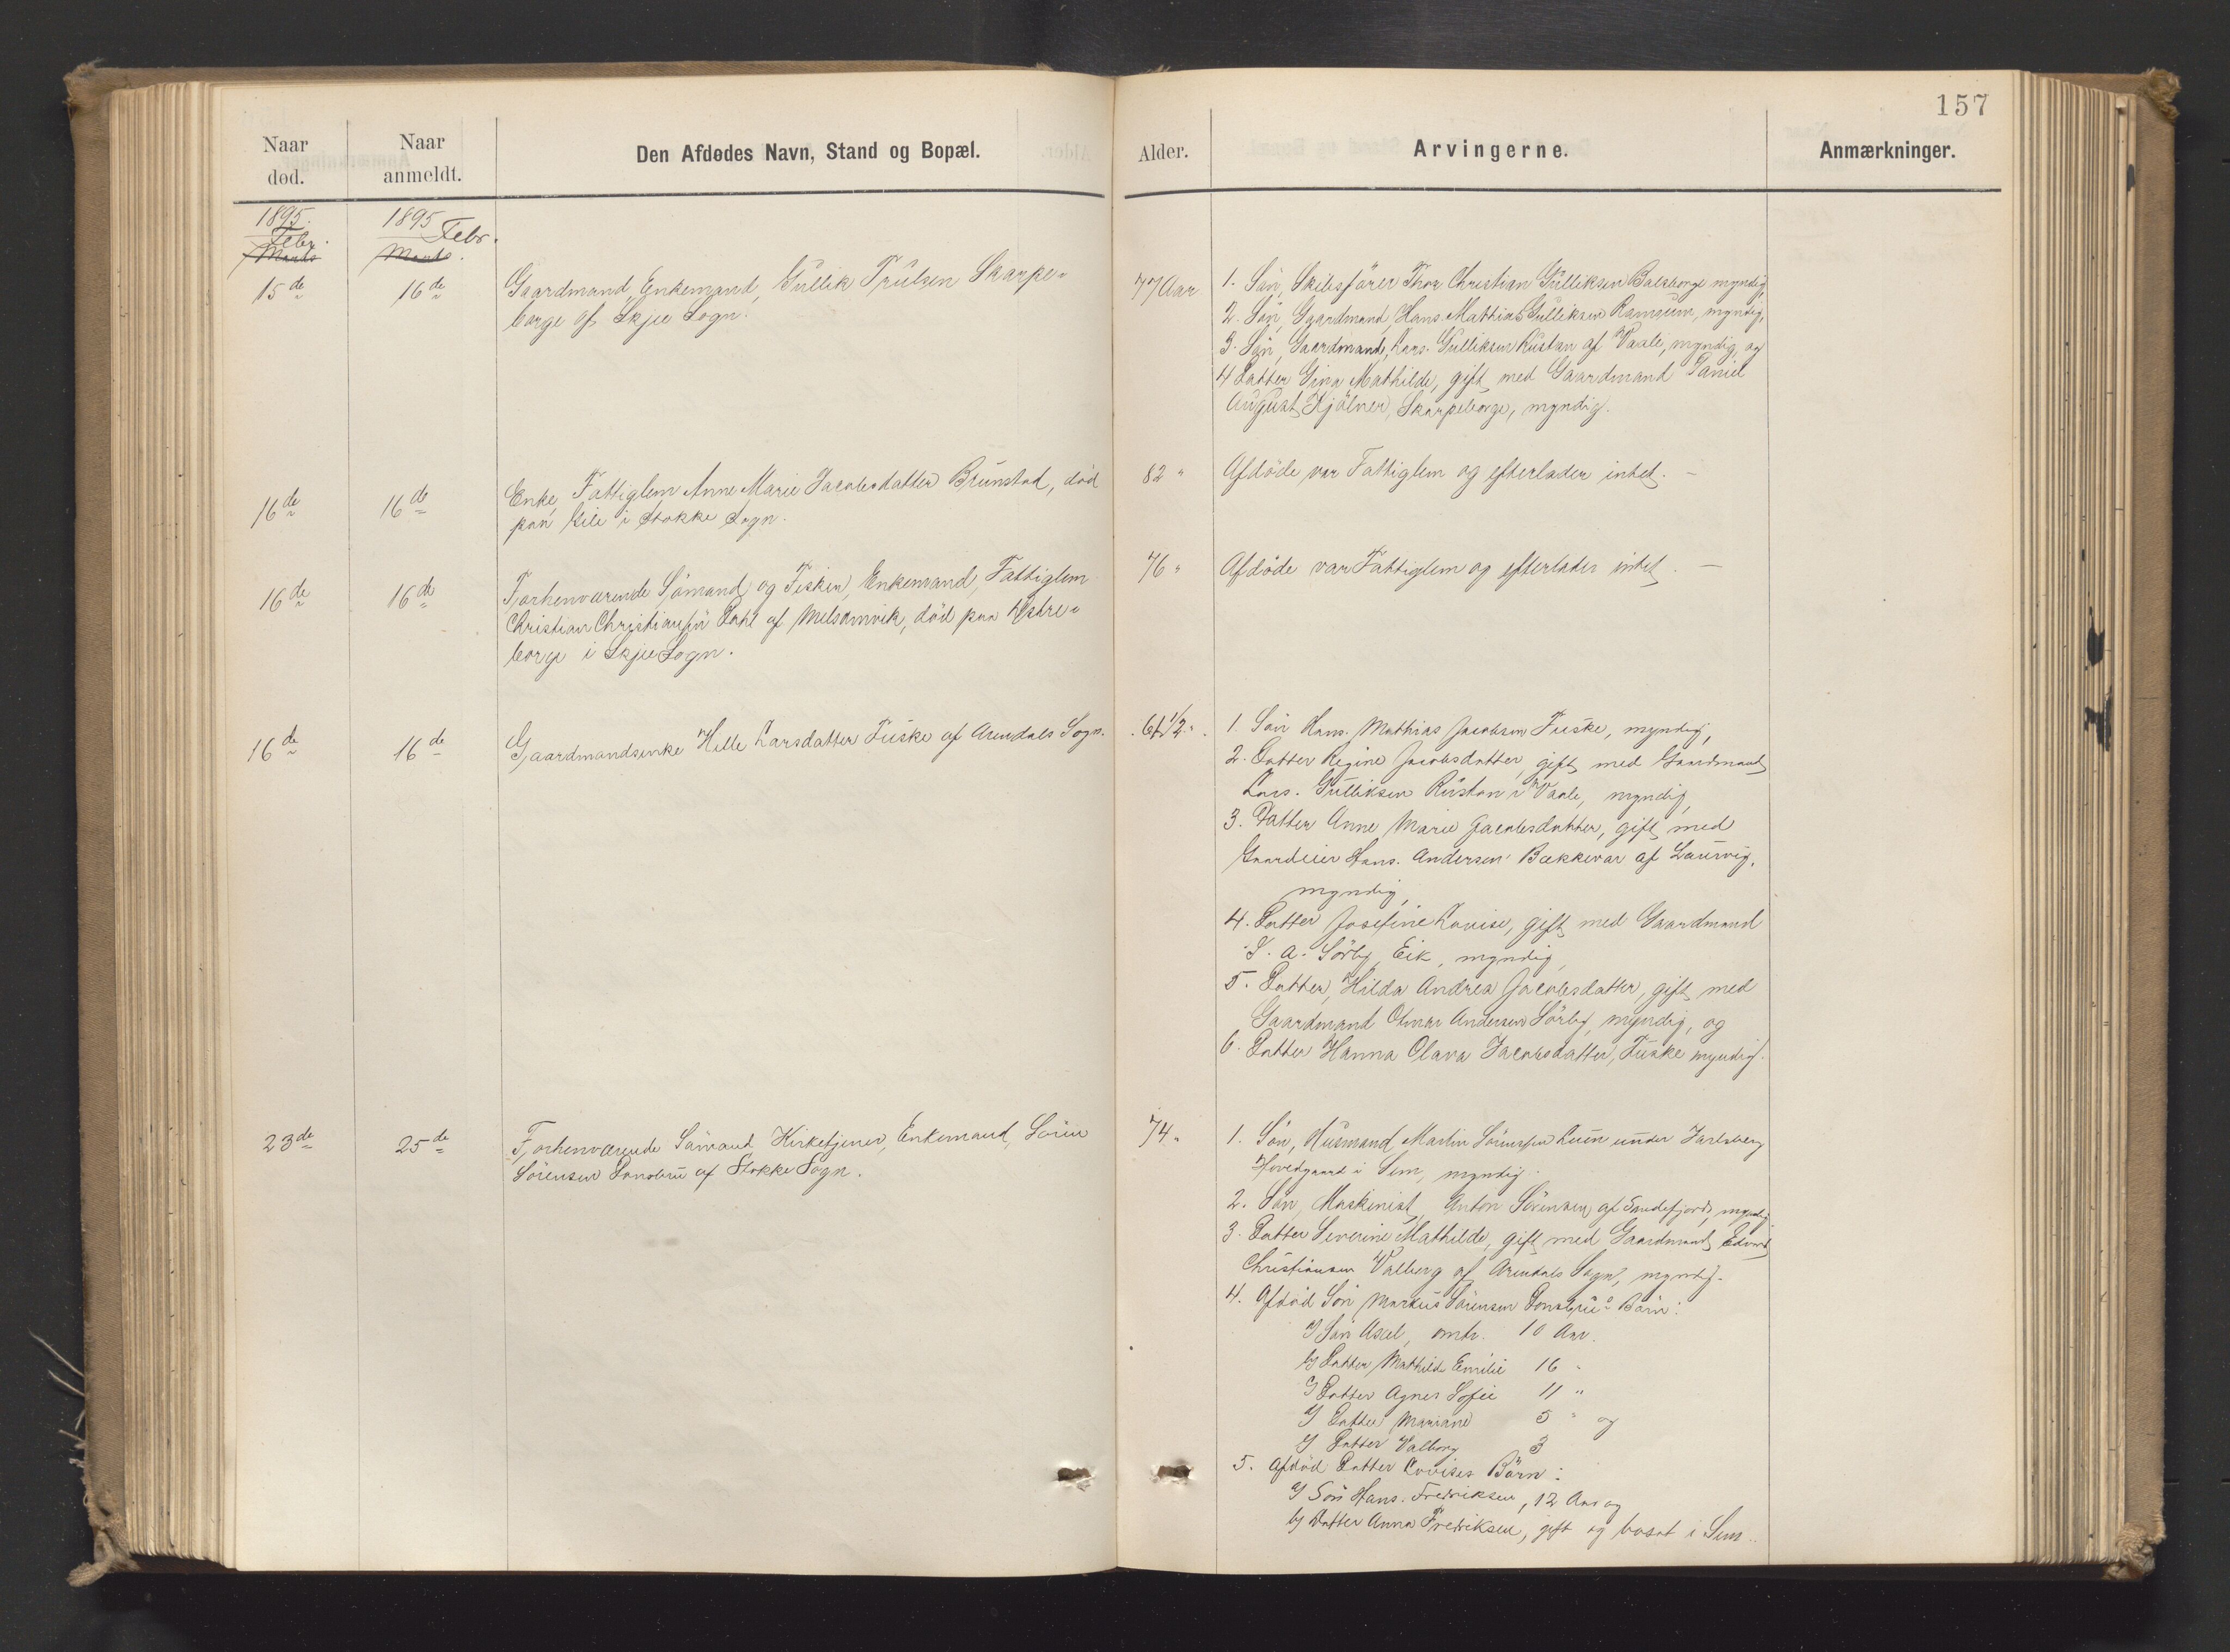 157
Naar død.
Naar anmeldt.
Den Afdødes Navn, Stand og Bopæl.
Alder.
Arvingerne.
Anmærkninger.
1895.
Febr.
Marts
1895
Febr.
Marts.
15de
16de
Gaardmand, Enkemand, Gullik Trulsen Skarpe-
borge af Skjee Sogn.
77 Aar
1. Søn, Skibsfører Thor Christian Gulliksen Borge myndig,
2. Søn, Gaardmand, Hans Mathias Gulliksen Ramsum, myndig,
3. Søn, Gaardmand, Lars Gulliksen Rustan af Vaale, myndig, og
4 Datter Gina Mathilde, gift med Gaardmand Daniel
August Hjølner, Skarpeborge, myndig.
16de
16de
Enke, Fattiglem Anne Marie Jacobsdatter Brunstad, død
paa i Stokke Sogn.
82 "
Afdøde var Fattiglem og efterlader intet. —
16de
16de
Forhenværende Sømand og Fisker, Enkemand, Fattiglem
Christian Christiansen Dahl af Melsomvik, død paa Østre-
borge i Skjee Sogn.
76 "
Afdøde var Fattiglem og efterlader intet. —
16de
16de
Gaardmandsenke Helle Larsdatter Fuske af Arendals Sogn.
61 1/2 "
1. Søn Hans Mathias Jacobsen Fuske, myndig,
2. Datter Regine Jacobsdatter, gift med Gaardmand
Lars Gulliksen Rustan i Vaale, myndig,
3. Datter Anne Marie Jacobsdatter, gift med
Gaardeier Hans Andersen Bækkevar af Laurvig,
myndig,
4. Datter Josefine Lovise, gift med Gaardmand
S. A. Sørby, Eik, myndig,
5. Datter, Hilda Andrea Jacobsdatter, gift med
Gaardmand Andersen Sørby, myndig, og
6. Datter Hanna Olava Jacobsdatter, Fuske myndig.
23de
25de
Forhenværende Sømand, Kirketjener, Enkemand, Sören
Sörensen af Stokke Sogn.
74 "
1. Søn, Husmand, Martin Sörensen Lunn under Jarlsberg
Hovedgaard i Sem, myndig.
2. Søn, Maskinist, Anton Sörensen af Sandefjord, myndig
3. Datter Severine Mathilde, gift med Gaardmand Edvard
Christiansen Valberg af Arendals Sogn, myndig.
4. Afdød Søn Markus Sörensen Börn:
a) Søn Axel, omtr. 10 Aar.
b) Datter Mathilde Emilie 16 "
c) Datter Agnes Sofie 11 "
d) Datter Mariane 5 " og
e) Datter Valborg 3
5. Afdød Datter Lovises Börn:
a) Søn Hans Fredriksen, 12 Aar og
b) Datter Anna Fredriksen, gift og bosat i Sem.